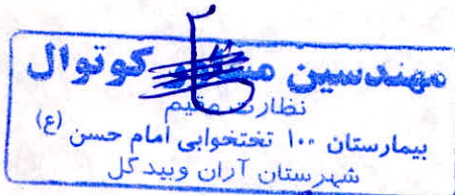 مهندسین مشاور کوتوال
نظارت مقیم
بیمارستان ۱۰۰ تختخوابی امام حسن (ع)
شهرستان آران وبیدگل